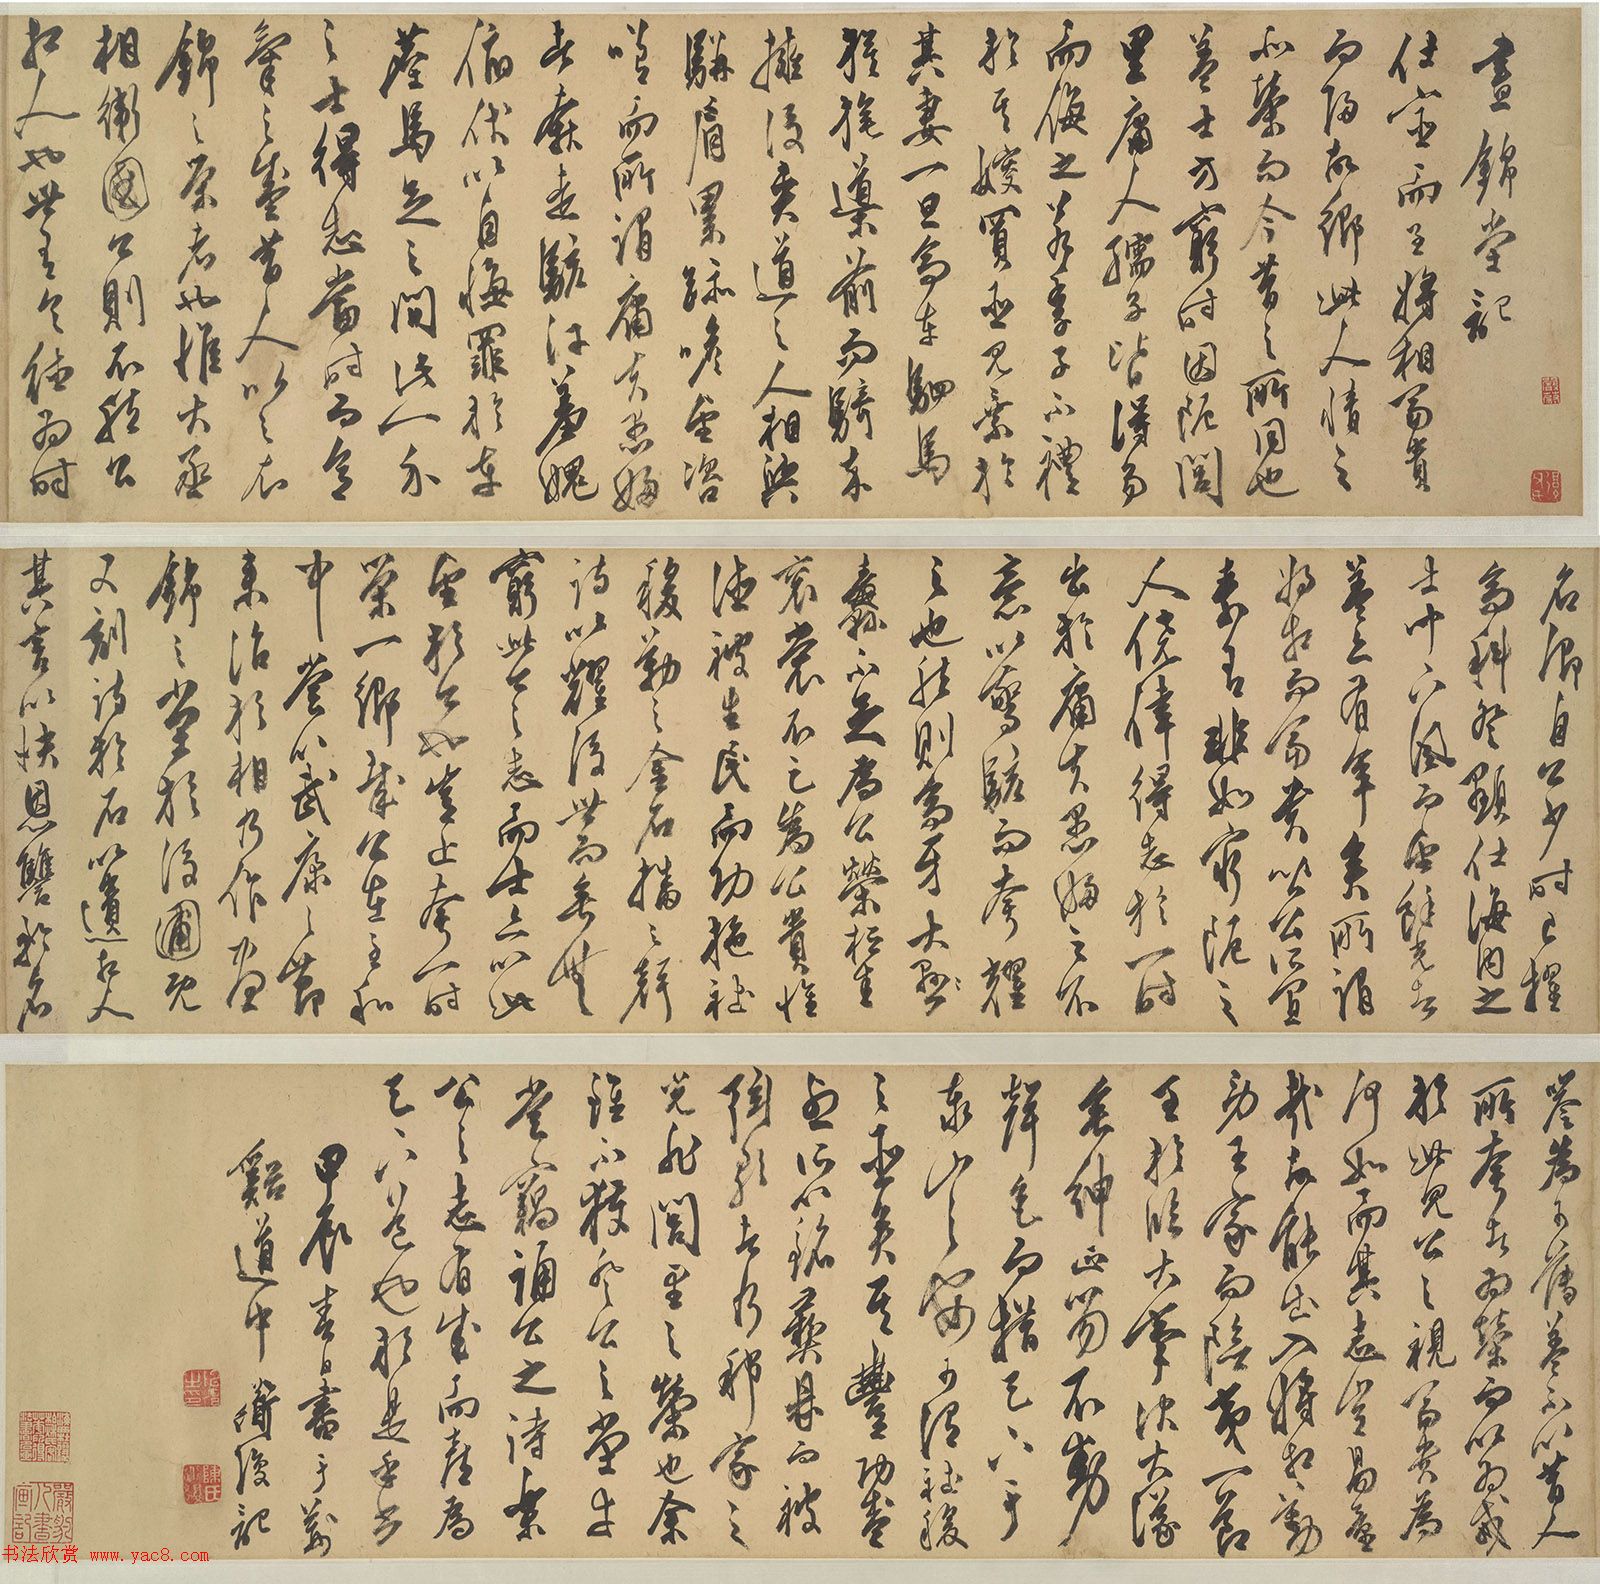 晝錦堂記
仕宦而至將相富貴
而歸故鄉此人情之
所榮而今昔之所同也
蓋士方窮時困阨閭
里庸人孺子皆得易
而侮之若季子不禮
於其嫂買臣見棄於
其妻一旦高車駟馬
旌旄導前而騎卒
擁後夾道之人相與
駢肩累跡瞻望咨
嗟而所謂庸夫愚婦
者奔走駭汗羞愧
俯伏以自悔罪於車
塵馬足之間此一介
之士得志當時而意
氣之盛昔人以之衣
錦之榮者也惟大丞
相衛國公則不然公
相人也世有令德為時
名卿自公少時已擢
高科登顯仕海內之
士聞下風而望餘光者
蓋亦有年矣所謂
將相而富貴皆公所宜
素有非如窮阨之
人僥倖得志於一時
出於庸夫愚婦之不
意以驚駭而夸耀
之也然則高牙大
纛不足為公榮桓圭
袞裳不足為公貴惟
德被生民而功施社
稷勒之金石播之聲
詩以耀後世而垂無
窮此公之志而士亦以此
望於公也豈止夸一時
榮一鄉哉公在至和
中嘗以武康之節
來治於相乃作晝
錦之堂於後圃既
又刻詩於石以遺相人
其言以快恩讐矜名
譽為可薄蓋不以昔人
所夸者為榮而以為戒
於此見公之視富貴為
何如而其志豈易量
哉故能出入將相勤
勞王家而險夷一節
至於臨大事決大議
垂紳正笏不動
聲色而措天下于
泰山之安可謂社稷
之臣矣其豐功盛
烈所以銘彝鼎而被
絃歌者乃邦家之
光非閭里之榮也余
雖不獲登公之堂幸
嘗竊誦公之詩樂
公之志有成而喜為
天下道也於是乎書
甲辰春日書于
谿道中 道復記
书法欣赏 www.yac8.com